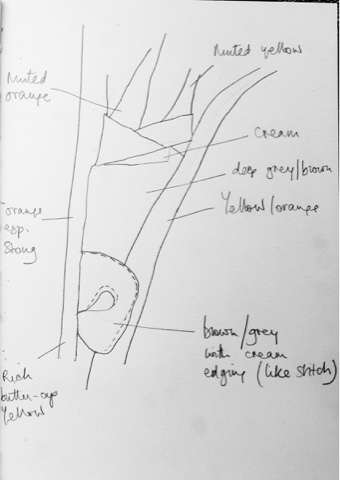 Muted yellow
Muted
orange
cream
deep grey/brown
Yellow/orange
orange
esp.
strong
brown/grey
with cream
edging (like stitch)
Rich
butter-cup
Yellow